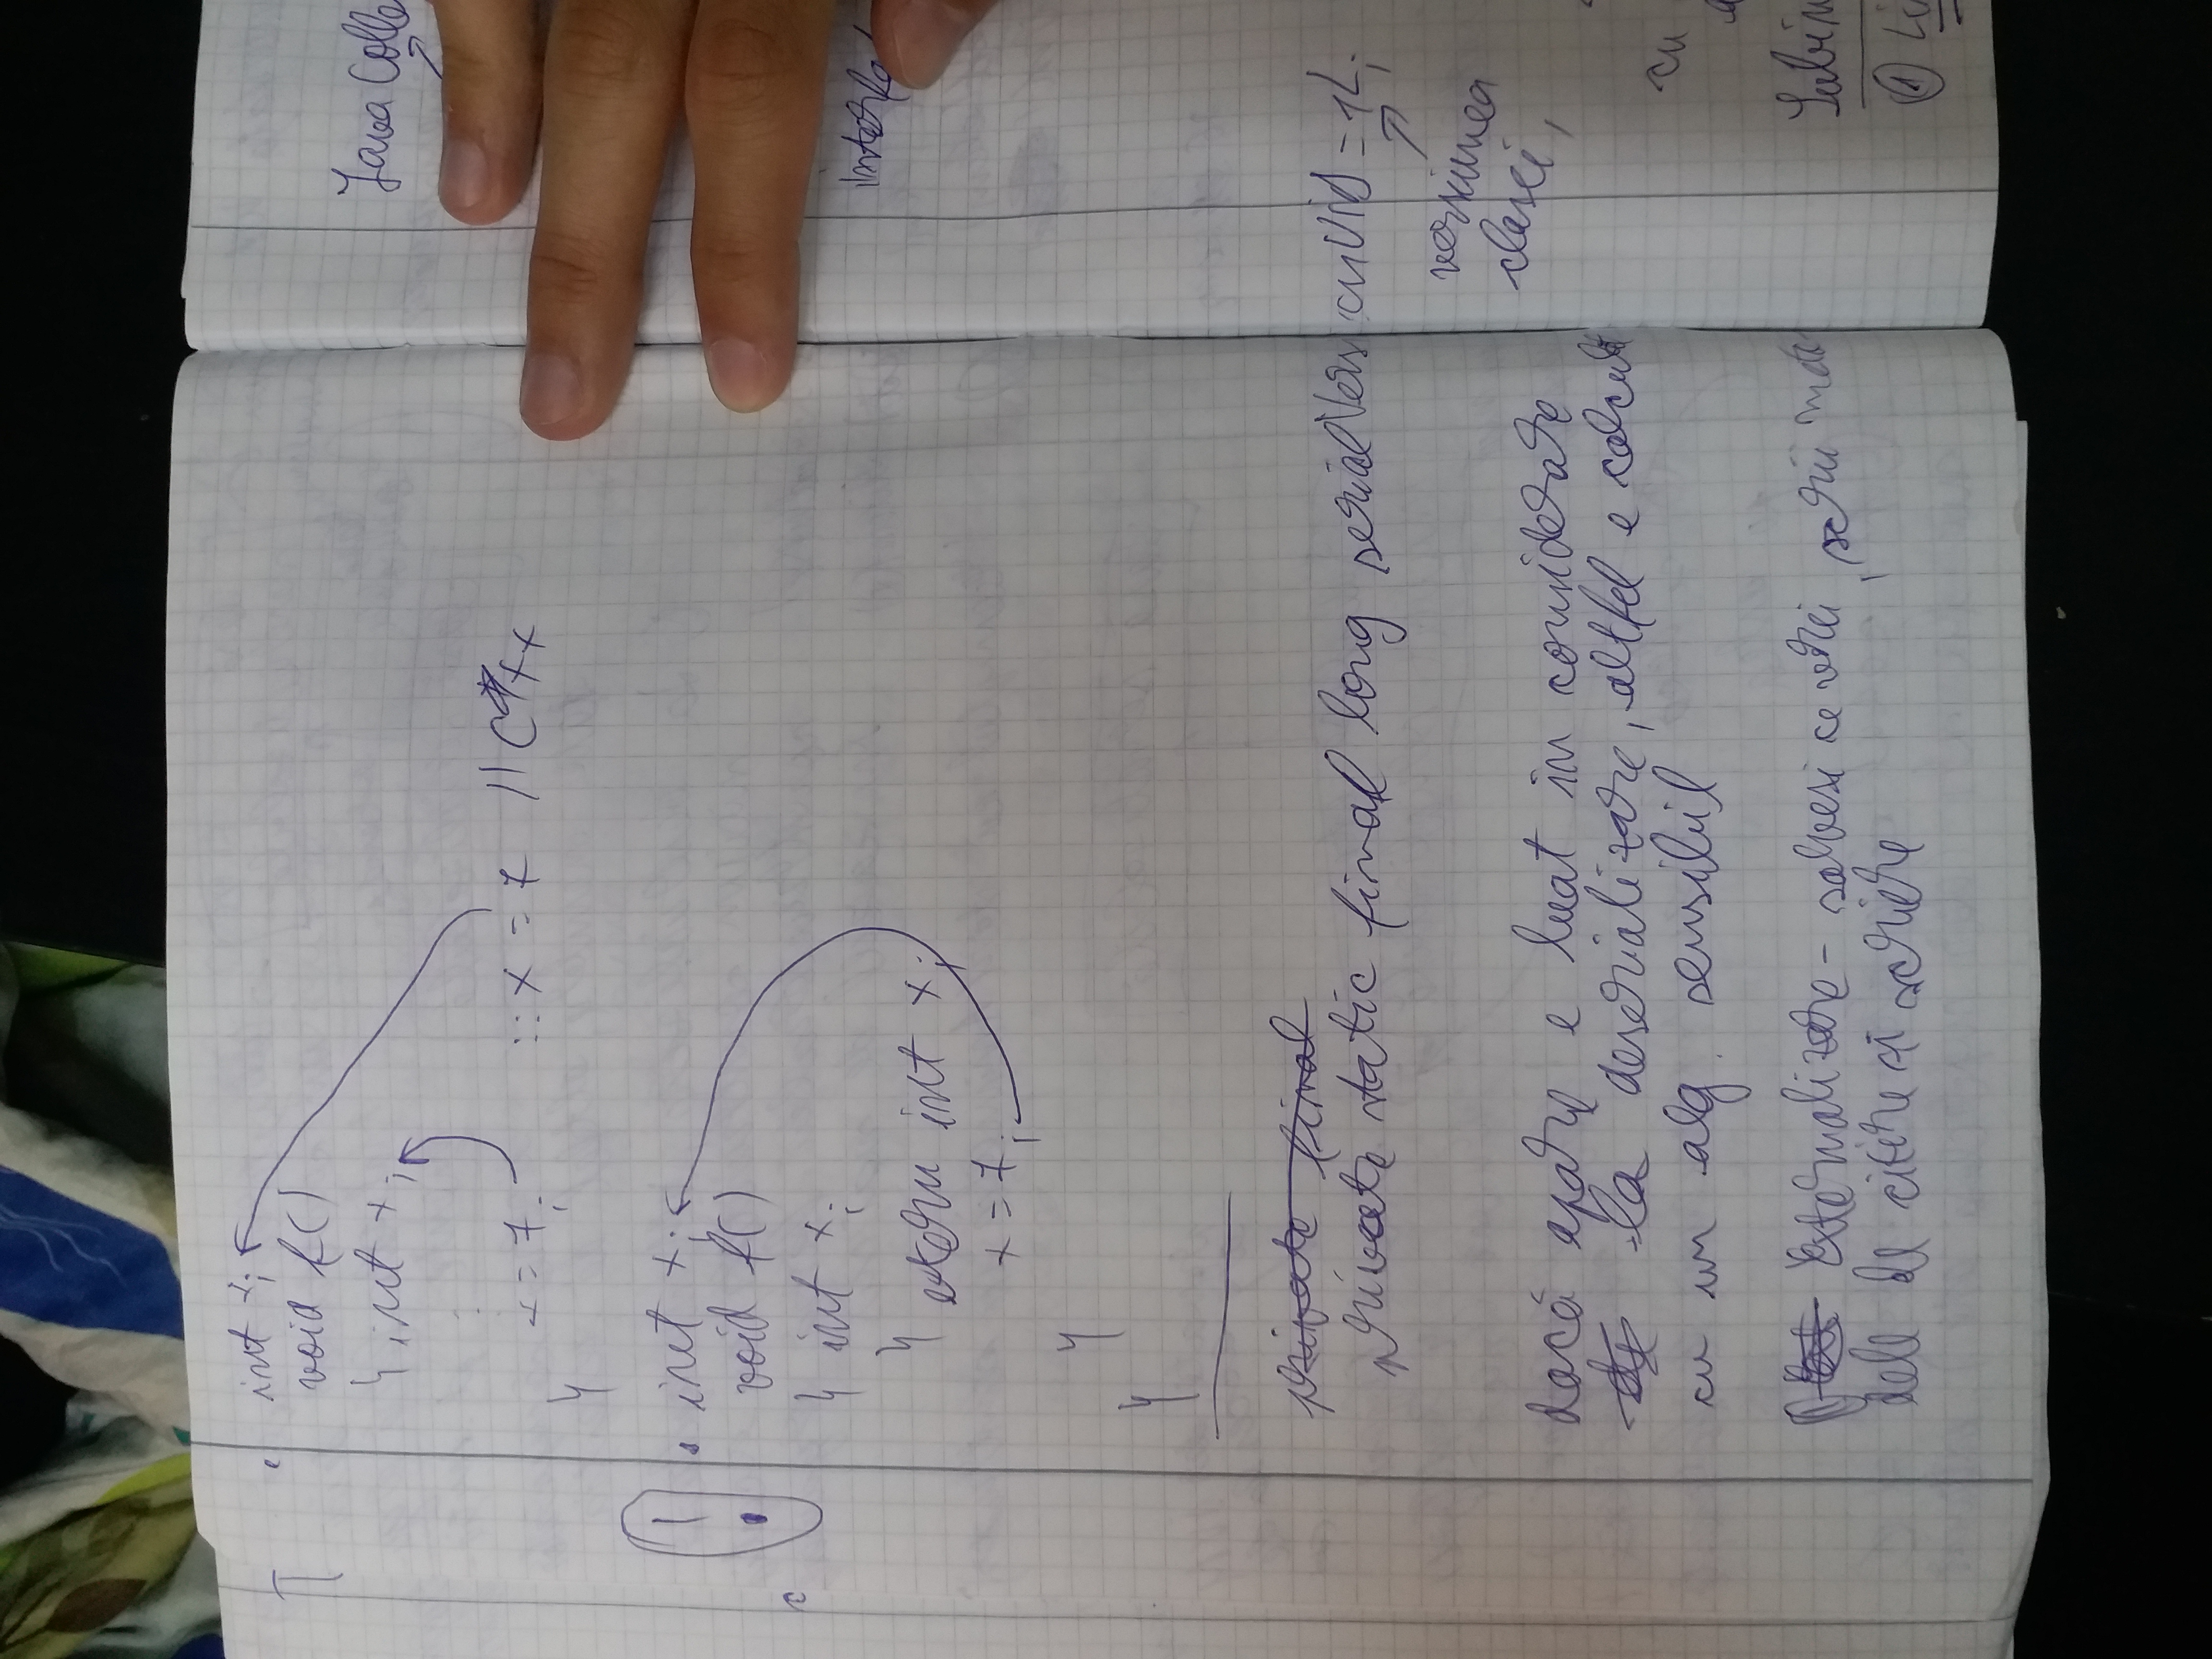 int x;
void f()
{ int x;
x = 7;    ::x = 7  // C++
}
! • int x;
void f()
{ int x;
{ extern int x;
x = 7;
}
}
private final
private static final long serialVersionUID = 1L;
versiunea
clasei,
dacă apare e luat in considerare
la deserializare, altfel e calculat
cu un alg. sensibil
Externalizare - salvezi ce vrei, scrii meto-
dele de citire și scriere
Java Colle
interfa
cu
① Li